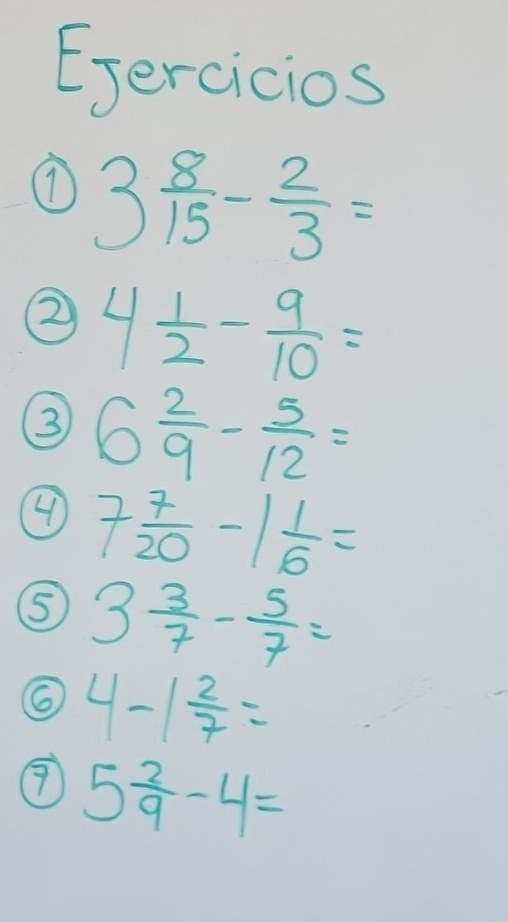 Ejercicios
① 3 8/15 - 2/3 =
② 4 1/2 - 9/10 =
③ 6 2/9 - 5/12 =
④ 7 7/20 - 1 1/6 =
⑤ 3 3/7 - 5/7 =
⑥ 4 - 1 2/7 =
⑦ 5 2/9 - 4 =